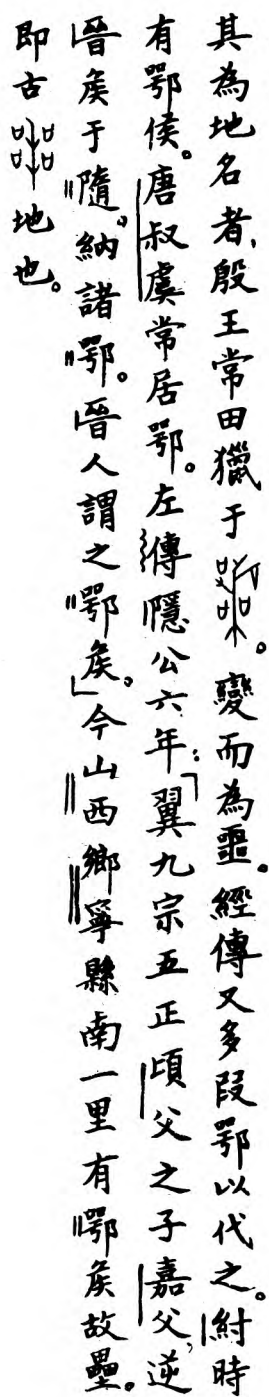 其為地名者、殷王常田獵于。變而為噩。經傳又多叚鄂以代之。紂時
有鄂侯。唐叔虞常居鄂。左傳隱公六年：「翼九宗五正頃父之子嘉父，逆
晉矦于隨，納諸鄂。晉人謂之鄂矦。」今山西鄉寧縣南一里有鄂矦故壘。
即古地也。